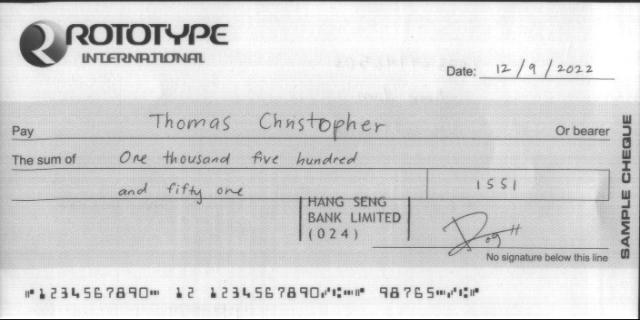 ROTOTYPE
INTERNATIONAL
Date: 12/9/2022
Pay Thomas Christopher Or bearer
The sum of One thousand five hundred
and fifty one 1551
HANG SENG
BANK LIMITED
(024)
No signature below this line
SAMPLE CHEQUE
⑈1234567890⑉ 12 1234567890⑇⑆⑉⑈ 98765⑉⑇⑆⑈